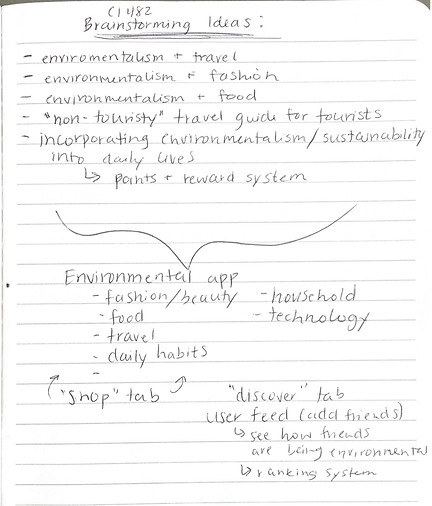 CI 482
Brainstorming Ideas:
- enviromentalism + travel
- environmentalism + fashion
- environmentalism + food
- "non-touristy" travel guide for tourists
- incorporating environmentalism/sustainability
into daily lives
↳ points + reward system
Environmental app
- fashion/beauty - household
- food - technology
- travel
- daily habits
-
"shop" tab "discover" tab
user feed (add friends)
↳ see how friends
are being environmental
↳ ranking system